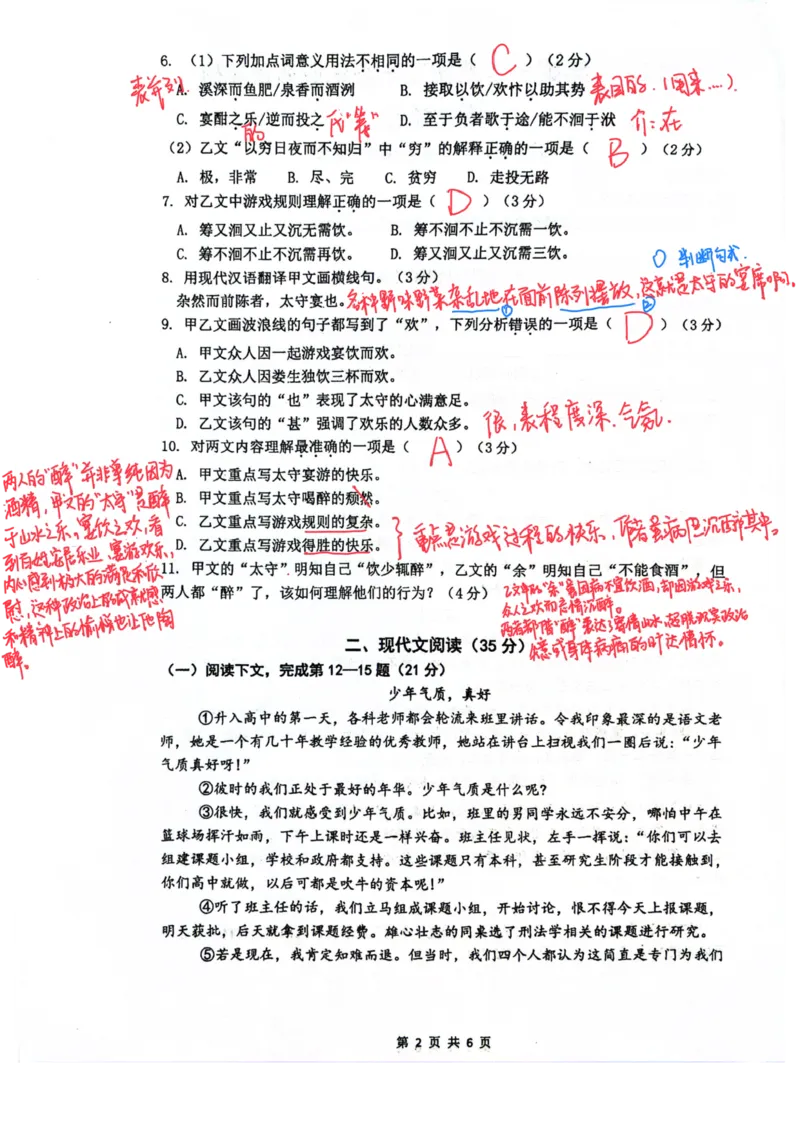 6. (1)下列加点词意义用法不相同的一项是( C )(2分)
表并列 A. 溪深而鱼肥/泉香而酒洌 B. 接取以饮/欢忭以助其势 表目的.(因来……).
C. 宴酣之乐/逆而投之 代"筹" D. 至于负者歌于途/能不洄于洑 介:在
的
(2)乙文“以穷日夜而不知归”中“穷”的解释正确的一项是( B )(2分)
A. 极,非常 B. 尽、完 C. 贫穷 D. 走投无路
7. 对乙文中游戏规则理解正确的一项是( D )(3分)
A. 筹又洄又止又沉无需饮。 B. 筹不洄不止不沉需一饮。
C. 筹不洄不止不沉需再饮。 D. 筹又洄又止又沉需三饮。
判断句式.
8. 用现代汉语翻译甲文画横线句。(3分)
杂然而前陈者,太守宴也。各种野味野菜杂乱地在面前陈列摆放,这就是太守的宴席啊。
① ②
9. 甲乙文画波浪线的句子都写到了“欢”,下列分析错误的一项是( D )(3分)
A. 甲文众人因一起游戏宴饮而欢。
B. 乙文众人因娄生独饮三杯而欢。
C. 甲文该句的“也”表现了太守的心满意足。
D. 乙文该句的“甚”强调了欢乐的人数众多。 很,表程度深.气氛.
10. 对两文内容理解最准确的一项是( A )(3分)
A. 甲文重点写太守宴游的快乐。
B. 甲文重点写太守喝醉的颓然。
C. 乙文重点写太守游戏规则的复杂。
D. 乙文重点写太守游戏得胜的快乐。
重点是游戏过程的快乐,作者虽病但沉醉其中。
11. 甲文的“太守”明知自己“饮少辄醉”,乙文的“余”明知自己“不能食酒”,但
两人都“醉”了,该如何理解他们的行为?(4分)
两人的"醉"并非单纯因为
酒精,甲文的"太守"是醉
于山水之乐、宴饮之欢,看
到百姓安居乐业、宴游欢乐,
内心感到极大的满足和欣
慰,这种政治上的成就感
和精神上的愉悦也让他陶
醉。
乙文中的"余"虽因病不宜饮酒,却因游戏之乐,
众人之欢而尽情沉醉。
两者都借"醉"表达了寄情山水、超脱沉郁政治
失意或身体病痛的旷达情怀。
二、现代文阅读(35分)
(一)阅读下文,完成第12—15题(21分)
少年气质,真好
①升入高中的第一天,各科老师都会轮流来班里讲话。令我印象最深的是语文老
师,她是一个有几十年教学经验的优秀教师,她站在讲台上扫视我们一圈后说:“少年
气质真好呀!”
②彼时的我们正处于最好的年华。少年气质是什么呢?
③很快,我们就感受到少年气质。比如,班里的男同学永远不安分,哪怕中午在
篮球场挥汗如雨,下午上课时还是一样兴奋。班主任见状,左手一挥说:“你们可以去
组建课题小组,学校和政府都支持。这些课题只有本科,甚至研究生阶段才能接触到,
你们高中就做,以后可都是吹牛的资本呢!”
④听了班主任的话,我们立马组成课题小组,开始讨论,恨不得今天上报课题,
明天获批,后天就拿到课题经费。雄心壮志的同桌选了刑法学相关的课题进行研究。
⑤若是现在,我肯定知难而退。但当时,我们四个人都认为这简直是专门为我们
第 2 页 共 6 页